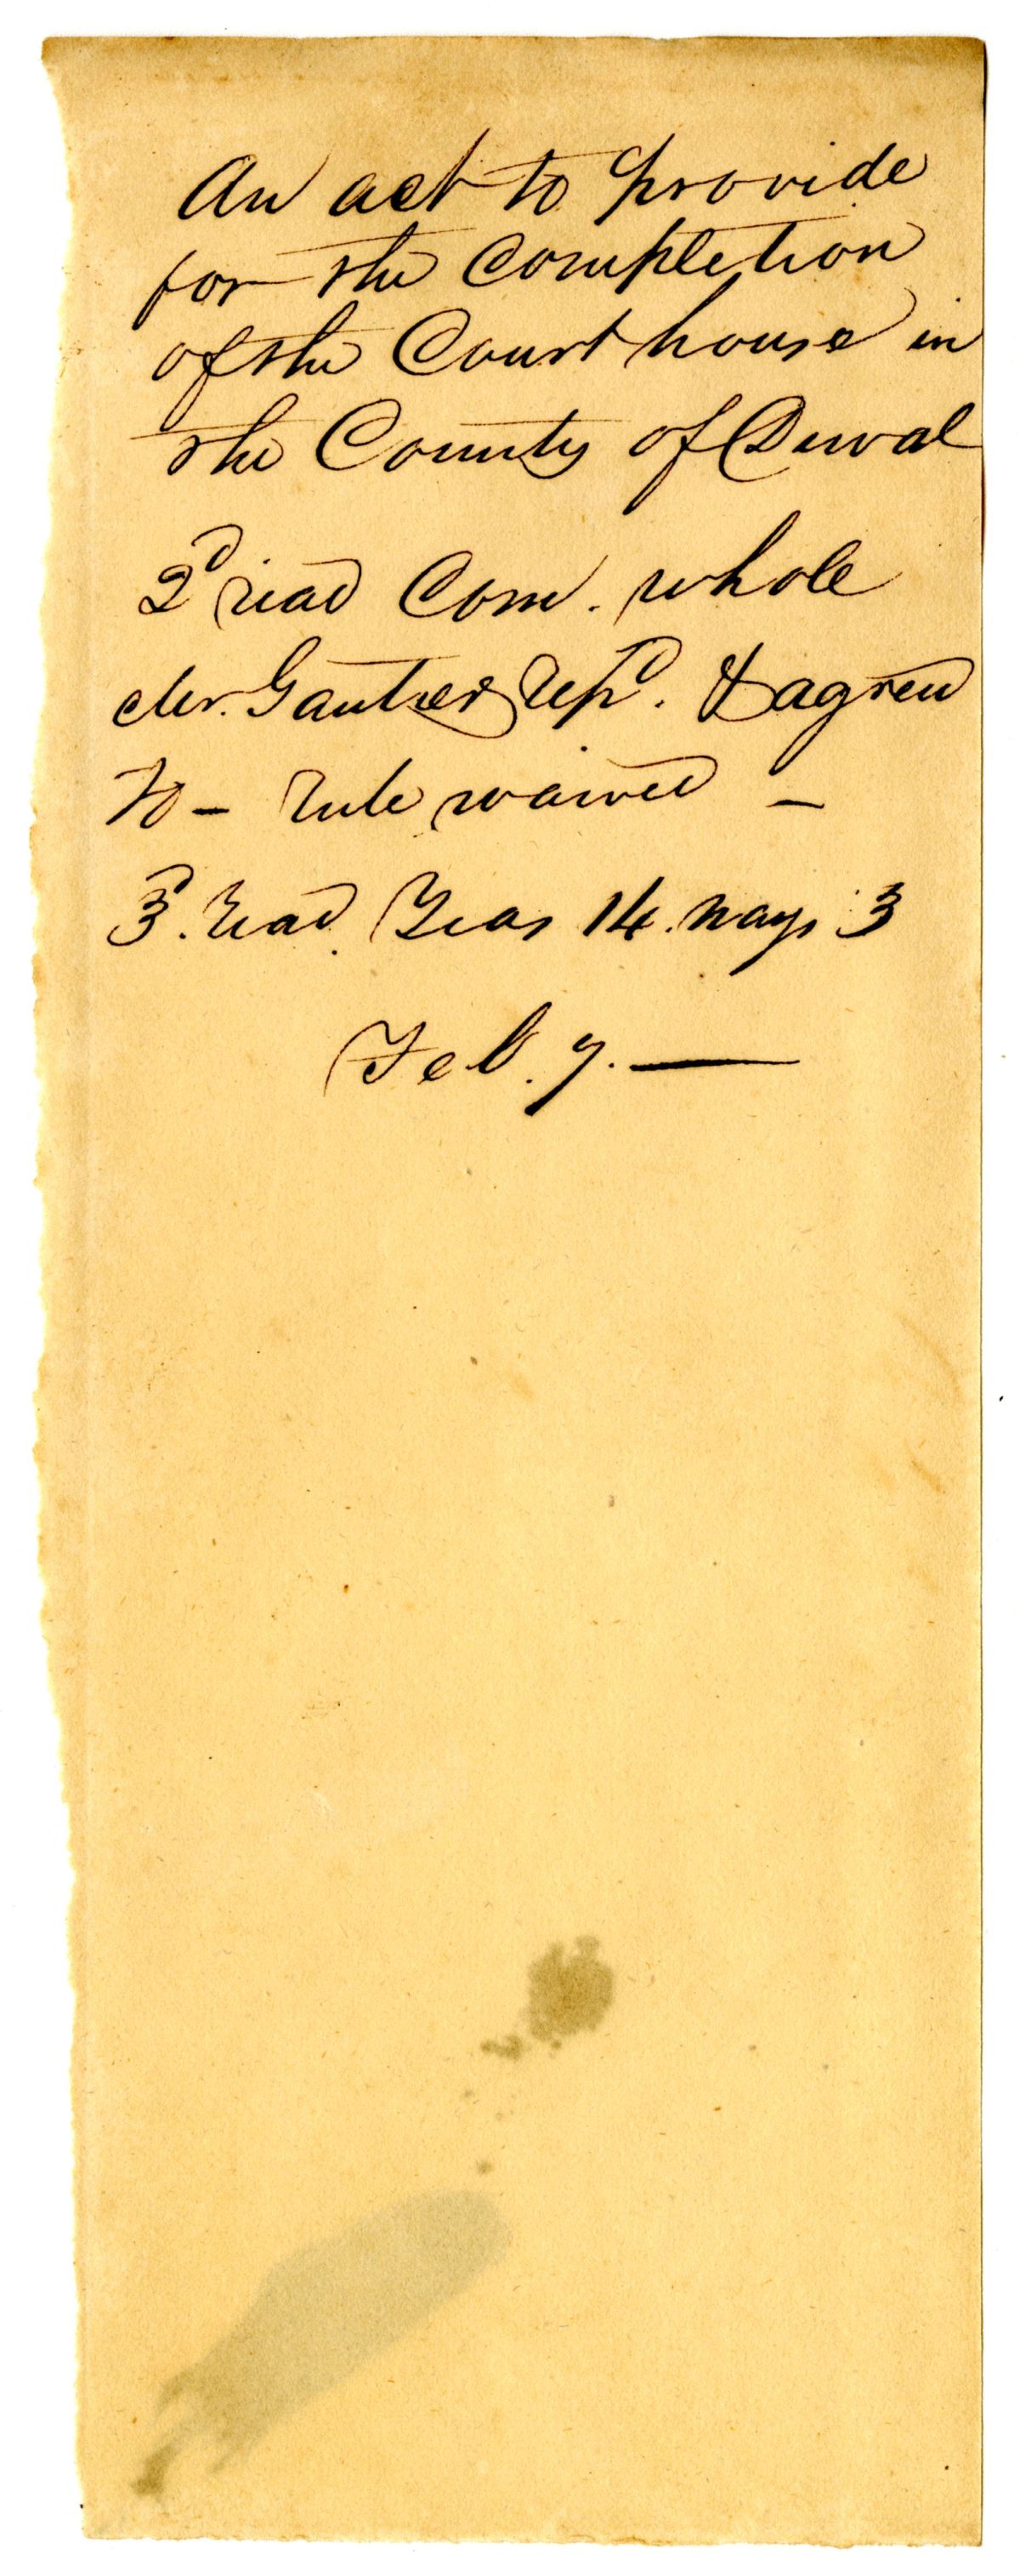 An act to provide
for the Completion
of the Court house in
the County of Duval
2d read Com. whole
Mr. Gautier Repd. & agreed
to – Rule waived –
3d. read Yeas 14. nays 3
Feb. 7. —